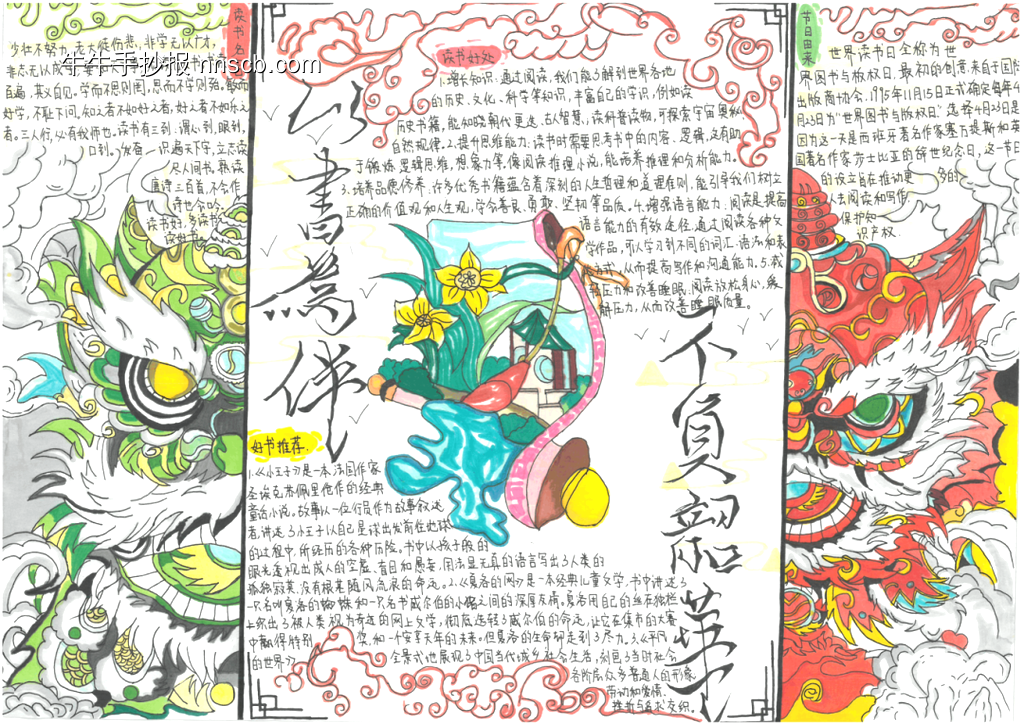 读书名
少壮不努力,老大徒伤悲,非学无以广才,
非志无以成学
牛牛手抄报 nnscb.com
百遍,其义自见,学而不思则罔,思而不学则殆,敏而
好学,不耻下问,知之者不如好之者,好之者不如乐之
者。三人行,必有我师也。读书有三到:谓心到,眼到,
口到。发奋识遍天下字,立志读
尽人间书,熟读
唐诗三百首,不会作
诗也会吟。
读书好,多读书
读好书。
以书为伴
不负韶华
读书好处
1.增长知识:通过阅读,我们能了解到世界各地
的历史、文化、科学等知识,丰富自己的学识,例如读
历史书籍,能知晓朝代更迭、古人智慧,读科普读物,可探索宇宙奥秘
自然规律。2.提升思维能力:读书时需要思考书中的内容、逻辑,这有助
于锻炼逻辑思维,想象力等,像阅读推理小说,能培养推理和分析能力。
3.培养品德修养:许多优秀书籍蕴含着深刻的人生哲理和道理准则,能引导我们树立
正确的价值观和人生观,学会善良、勇敢、坚韧等品质。4.增强语言能力:阅读是提高
语言能力的有效途径,通过阅读各种文
学作品,可以学习到不同的词汇、语法和表
达方式,从而提高写作和沟通能力。5.减
轻压力和改善睡眠:阅读放松身心,缓
解压力,从而改善睡眠质量。
节日由来
世界读书日全称为世
界图书与版权日,最初的创意来自于国际
出版商协会.1995年11月15日正式确定每年4
月23日为"世界图书与版权日"选择4月23日是
因为这一天是西班牙著名作家塞万提斯和英
国著名作家莎士比亚的辞世纪念日,这一节日
的设立旨在推动更多的
人去阅读和写作
保护知
识产权.
好书推荐
1.《小王子》是一本法国作家
圣埃克苏佩里他作的经典
童话小说。故事以一位行员作为故事叙述
者,讲述了小王子从自己星球出发前往地球
的过程中,所经历的各种历险。书中以孩子般的
眼光透视出成人的空虚、盲目和愚妄,用浅显天真的语言写出了人类的
孤独寂寞,没有根基随风流浪的命运。2.《夏洛的网》是一本经典儿童文学,书中讲述了
一只名叫夏洛的蜘蛛和一只名书威尔伯的小猪之间的深厚友情。夏洛用自己的丝在猪栏
上织出了被人类视为奇迹的网上文字,彻底逆转了威尔伯的命运,让它在集市的大赛
中赢得特别奖,和一个安享天年的未来。但夏洛的生命却走到了尽力。3.《平凡
的世界》全景式地展现了中国当代城乡社会生活,刻画了当时社会
各阶层众多普通人的形象
劳动和爱情、
挫折与追求交织。